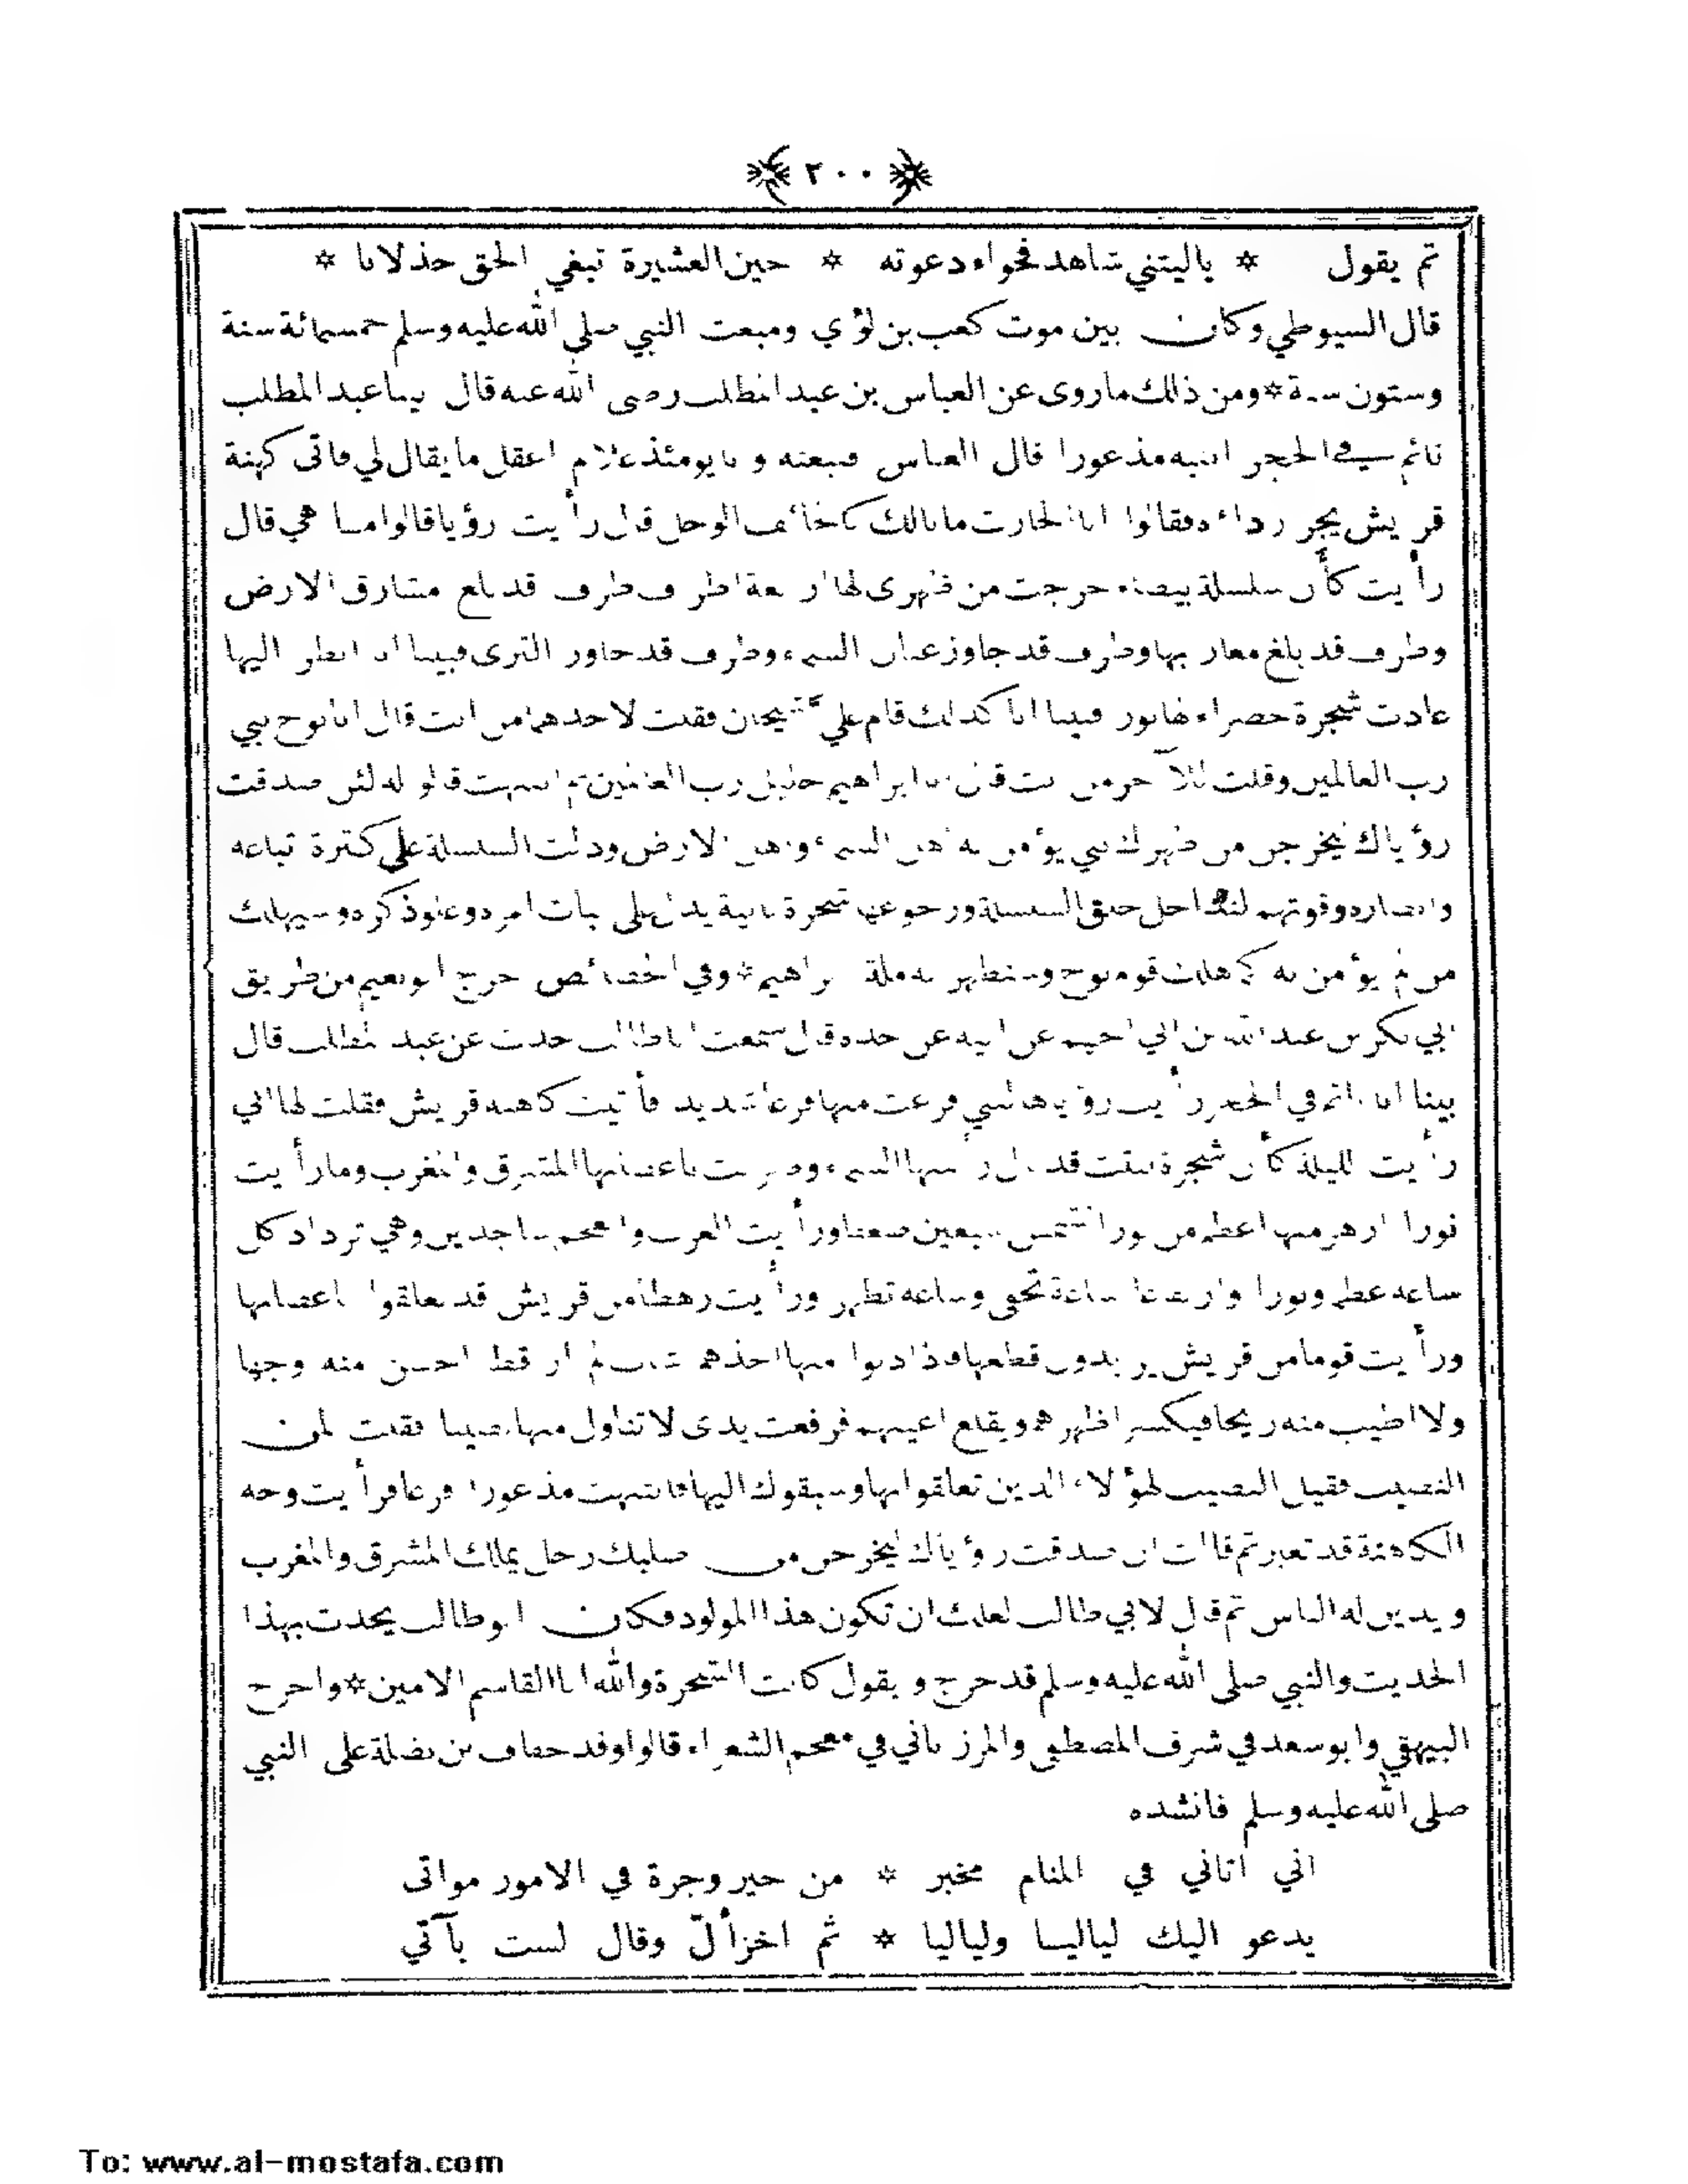 ﴿ ٢٠٠ ﴾
ثم يقول * ياليتني شاهد فحواء دعوته * حين العشيرة تبغي الحق خذلانا *
قال السيوطي وكان بين موت كعب بن لؤي ومبعث النبي صلى الله عليه وسلم خمسمائة سنة
وستون سنة * ومن ذلك ماروى عن العباس بن عبد المطلب رضى الله عنه قال بينا عبد المطلب
نائم في الحجر انتبه مذعورا قال العباس فتبعته وانا يومئذ غلام اعقل ما يقال لي فاتى كهنة
قريش يجر رداءه فقالوا اباالحارث ما بالك كالخائف الوجل قال رأيت رؤيا قالوا وما هي قال
رأيت كأن سلسلة بيضاء خرجت من ظهرى لها اربعة اطراف طرف قد بلغ مشارق الارض
وطرف قد بلغ مغاربها وطرف قد جاوز عنان السماء وطرف قد جاوز الثرى فبينا انا انظر اليها
عادت شجرة خضراء لها نور فبينا انا كذلك قام علي شيخان فقلت لاحدهما من انت قال انا نوح نبي
رب العالمين وقلت للآخر من انت قال انا ابراهيم خليل رب العالمين ثم انتبهت قالوا له لئن صدقت
رؤياك ليخرجن من ظهرك نبي يؤمن به اهل السماء واهل الارض ودلت السلسلة على كثرة تباعه
وانصاره وقوتهم لتداخل حلق السلسلة ورجوعها شجرة ثابتة يدل على ثبات امره وعلو ذكره وسيهلك
من لم يؤمن به كما هلك قوم نوح وستظهر به ملة ابراهيم * وفي الخصائص خرج ابو نعيم من طريق
ابي بكر بن عبد الله بن ابي الجهم عن ابيه عن جده قال سمعت اباطالب حدث عن عبد المطلب قال
بينا انا نائم في الحجر رأيت رؤيا هالتني فزعت منها فزعا شديد فأتيت كاهنه قريش فقلت لها اني
رأيت الليلة كأن شجرة نبتت قد نال رأسها السماء وضربت باغصانها المشرق والمغرب وما رأيت
نورا ازهر منها اعظم من نور الشمس سبعين ضعفا ورأيت العرب والعجم ساجدين وهي تزداد كل
ساعه عظما ونورا وارتفاعا ساعة تخفى وساعه تظهر ورأيت رهطا من قريش قد تعلقوا باغصانها
ورأيت قوما من قريش يريدون قطعها فاذا دنوا منها اخذهم شاب لم ار قط احسن منه وجها
ولا اطيب منه ريحا فيكسر اظهرهم ويقلع اعينهم فرفعت يدى لاتناول منها نصيبا فقلت لمن
النصيب فقيل النصيب لهؤلاء الذين تعلقوا بها وسبقوك اليها فانتبهت مذعورا فزعا فرأيت وجه
الكاهنة قد تغير ثم قالت لئن صدقت رؤياك ليخرجن من صلبك رجل يملك المشرق والمغرب
ويدين له الناس ثم قال لابي طالب لعلك ان تكون هذا المولود فكان ابو طالب يحدث بهذا
الحديث والنبي صلى الله عليه وسلم قد خرج ويقول كانت الشجرة والله ابا القاسم الامين * واخرج
البيهقي وابو سعد في شرف المصطفى والمرزباني في معجم الشعراء قالوا وفد خفاف بن نضلة على النبي
صلى الله عليه وسلم فانشده
اني اتاني في المنام مخبر * من خير وجرة في الامور مواتى
يدعو اليك لياليا ولياليا * ثم احزألّ وقال لست بآتي
To: www.al-mostafa.com